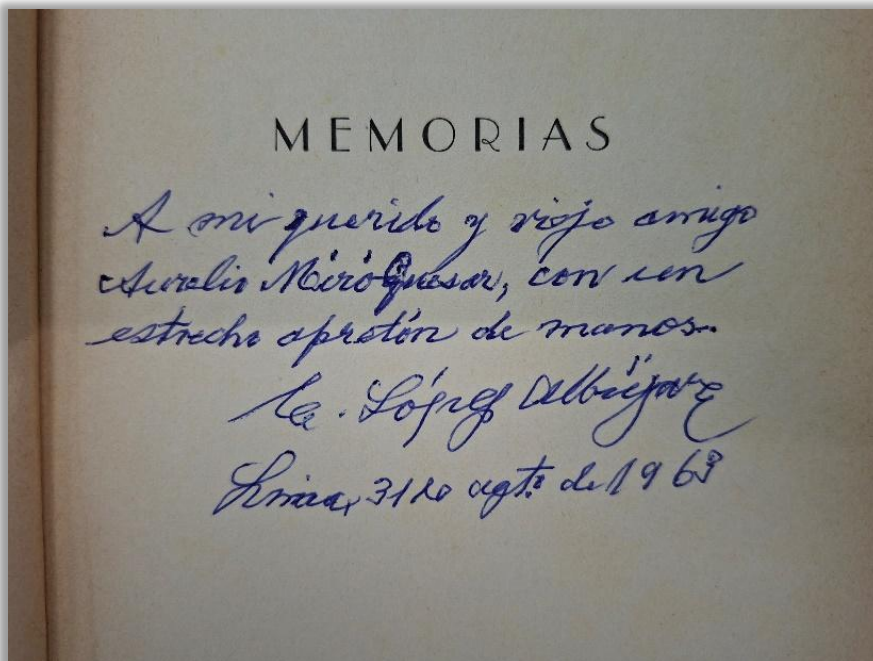 MEMORIAS
A mi querido y viejo amigo
Aurelio Miró Quesada, con un
estrecho apretón de manos.
E. López Albújar
Lima, 31 de agto. de 1963